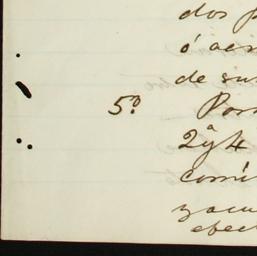 dos p
ó aen
de su
5º Por
2ª y 4
comi
yacu
efect